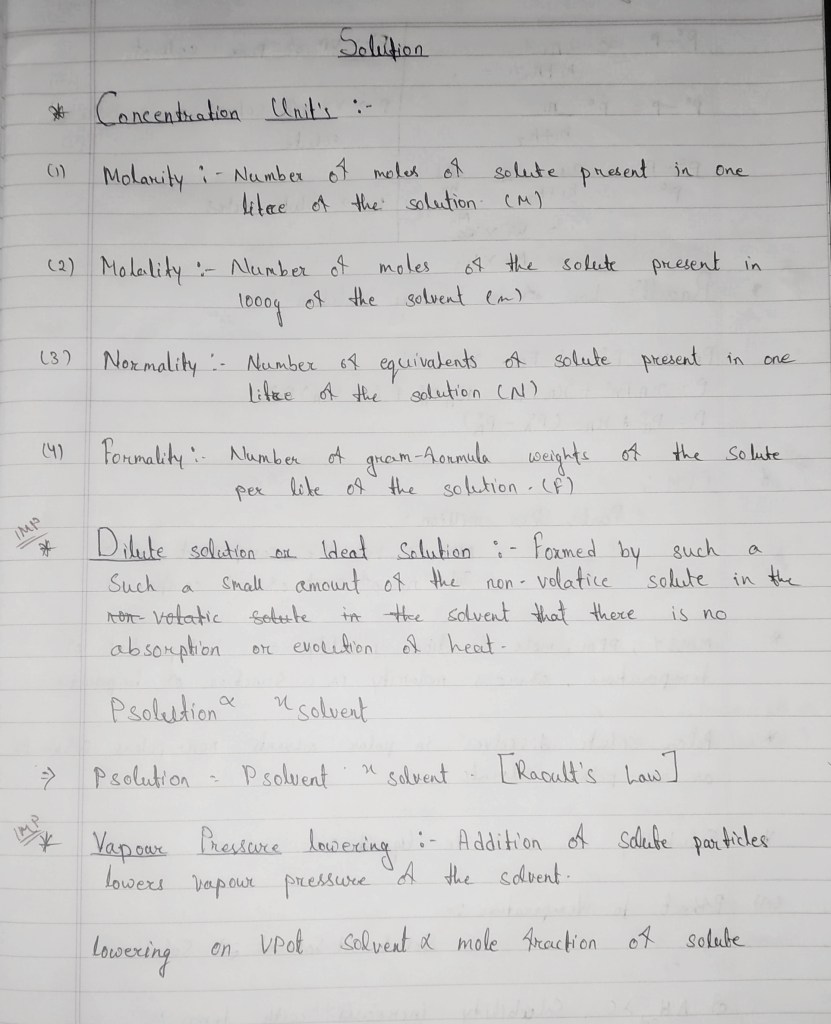 Solution
* Concentration Unit's :-
(1) Molarity :- Number of moles of solute present in one
litre of the solution (M)
(2) Molality :- Number of moles of the solute present in
1000g of the solvent (m)
(3) Normality :- Number of equivalents of solute present in one
litre of the solution (N)
(4) Formality :- Number of gram-formula weights of the solute
per lite of the solution. (F)
IMP
* Dilute solution or Ideal Solution :- Formed by such a
Such a small amount of the non-volatice solute in the
non-volatic solute in the solvent that there is no
absorption or evolution of heat.
Psolution ∝ x solvent
⇒ Psolution = Psolvent . x solvent . [Raoult's Law]
IMP
* Vapour Pressure lowering :- Addition of solute particles
lowers vapour pressure of the solvent.
lowering on VPof solvent ∝ mole fraction of solute